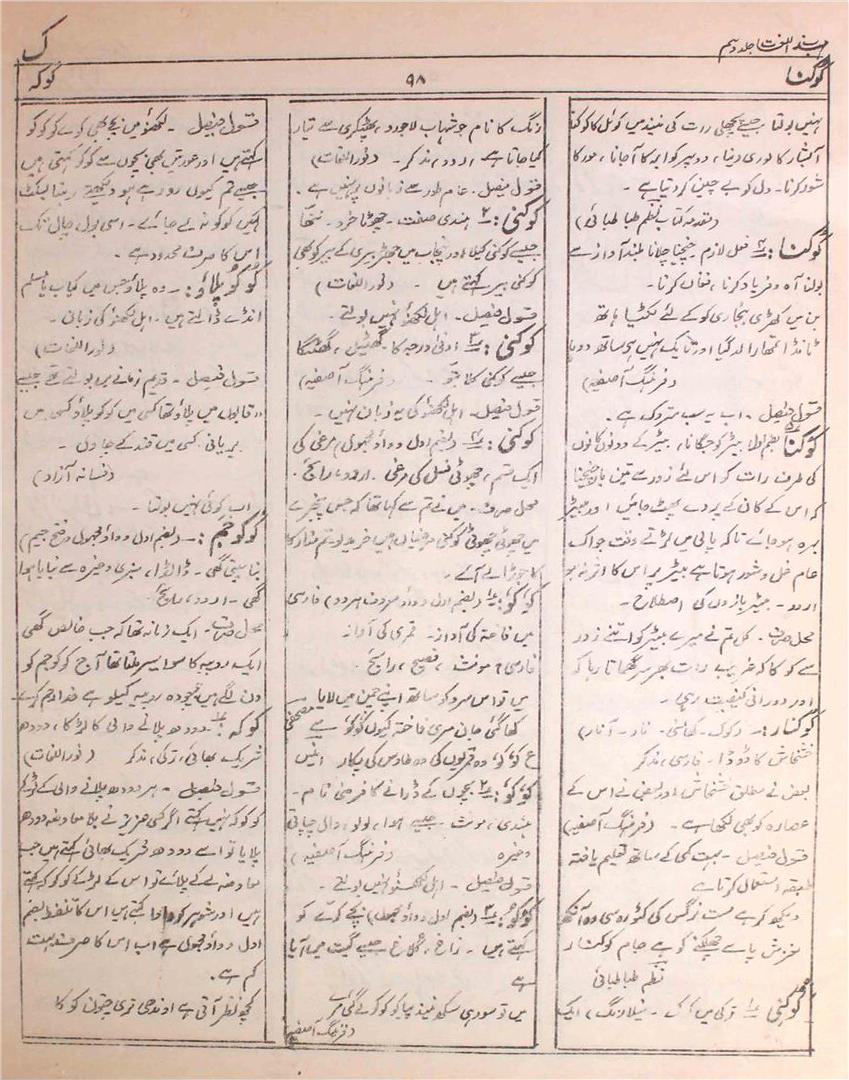 مہذب اللغات جلد دہم
ک
کوکنا
۹۸
کوکہ
نہیں بولتا جیسے پچھلی رات کی نیند میں کوئل کا کوکنا
آبشار کا لوری دینا، دوپہر کو ابر کا آجانا، مور کا
شور کرنا۔ دل کو بے چین کر دیتا ہے۔
(مقدمہ کتاب نظم طبا طبائی)
کوکنا: فعل لازم۔ چیخنا چلانا بلند آواز سے
بولنا آہ و فریاد کرنا، فغاں کرنا۔
بن میں کھڑی بنجاری کوکے لئے لکٹیا ہاتھ
ٹانڈا تھا را لد گیا اور نایک نہیں ہی ساتھ دوہا
(فرہنگ آصفیہ)
قول فیصل۔ اب یہ سب متروک ہے۔
کوکنا بٹیر کو جگانا، بٹیر کے دونوں کانوں
کی طرف رات کو اس لئے زور سے تین بار چیخنا
کہ اس کے کان کے پردے پھٹ جائیں اور بٹیر
بہرہ ہو جائے تاکہ پالی میں لڑتے وقت جو اک
عام غل و شور ہوتا ہے بٹیر پر اس کا اثر نہ ہو
اردو۔ بٹیر بازوں کی اصطلاح۔
محل صرف۔ کل تم نے میرے بٹیر کو اتنے زور
سے کوکا کہ غریب رات بھر سر گھماتا رہا کہ
اور دورانی کیفیت رہی۔
کوکنار:۔ (کوک۔ کھانسی۔ نار۔ انار)
خشخاش کا ڈوڈا۔ فارسی، مذکر
بعض نے مطلق خشخاش اور بعض نے اس کے
عصارہ کو بھی لکھا ہے۔ (فرہنگ آصفیہ)
قول فیصل۔ بہت کمی کے ساتھ تعلیم یافتہ
طبقہ استعمال کرتا ہے
دیکھ کر ہے مست نرگس کی کٹوری سی وہ آنکھ
لغزش پا سے چھلکنے کو ہے جام کوکنار
نظم طبا طبائی
کوکنی ترکی میں کوک۔ نیلا رنگ، ایک
رنگ کا نام جو شہاب لاجورد، پھٹکری سے تیار
کیا جاتا ہے اردو، مذکر۔ (نور اللغات)
قول فیصل۔ عام طور سے زبانوں پر نہیں ہے۔
کوکنی: ہندی صفت۔ چھوٹا خرد۔ ننھا
جیسے کوکنی کیلا، اور پنجاب میں جھڑ بیری کے بیر کو بھی
کوکنی بیر کہتے ہیں۔ (نور اللغات)
قول فیصل۔ اہل لکھنؤ نہیں بولتے۔
کوکنی: ادنیٰ درجہ کا۔ گھٹیل، گھٹنگا
جیسے کوکنی کلا بتو۔ (فرہنگ آصفیہ)
قول فیصل۔ اہل لکھنؤ کی یہ زبان نہیں۔
کوکنی: (بضم اول و واو مجہول) مرغی کی
ایک قسم، چھوٹی نسل کی مرغی۔ اردو، رائج۔
محل صرف۔ میں نے تم سے کہا تھا کہ جس پنجرے
میں چھوٹی چھوٹی کوکنی مرغیاں ہیں خرید لو تم مدار کا
کا جوڑا لے آئے۔
کوکو: (بضم اول و واو معروف ہر دو) فارسی
میں فاختہ کی آواز۔ قمری کی آواز
فارسی، مونث، فصیح، رائج۔
میں تو اس سرو کو ساتھ اپنے چمن میں لایا
کھا گئی جان مری فاختہ کیوں کوکو سے مصحفی
ع کوکو وہ قمریوں کی وہ طاؤس کی پکار انیس
کوکو: بچوں کے ڈرانے کا فرضی نام۔
ہندی، مونث۔ جیسے ہوا، لولو، دال چپاتی
وغیرہ (فرہنگ آصفیہ)
قول فیصل۔ اہل لکھنؤ نہیں بولتے۔
کوکو: (بضم اول و واو مجہول) بچے کوے کو
کہتے ہیں۔ زاغ، جیسے گیت میں آیا
ہے
میں تو سو رہی سکھ نیند پیا کو کوکو لے گئی
(فرہنگ آصفیہ)
قول فیصل۔ لکھنؤ میں بچے بھی کوے کو کوکو
کہتے ہیں اور عورتیں بھی بچوں سے کوکو کہتی ہیں
جیسے تم کیوں رو رہے ہو دیکھتے رہنا بسکٹ
کہیں کوکو نہ لے جائے۔ اسی بول چال تک
اس کا صرف محدود ہے۔
کوکو پلاؤ:۔ وہ پلاؤ جس میں کباب یا مسلم
انڈے ڈالتے ہیں۔ اہل لکھنؤ کی زبان۔
(نور اللغات)
قول فیصل۔ قدیم زمانے میں بولتے تھے جیسے
قابوں میں پلاؤ تھا کسی میں کوکو پلاؤ کسی میں
بریانی کسی میں قند کے چاول۔
(فسانہ آزاد)
اب کوئی نہیں بولتا۔
کوکو جم:۔ (بضم اول و واو مجہول و فتح جیم)
بناسپتی گھی۔ ڈالڈا، سبزی وغیرہ سے بنایا ہوا
گھی۔ اردو، رائج
محل صرف۔ ایک زمانہ تھا کہ جب خالص گھی
ایک روپیہ کا سوا سیر ملتا تھا آج کوکو جم کو
دن لگے ہیں چودہ روپیہ کیلو ہے خدا رحم کرے
کوکہ: دودھ پلانے والی کا لڑکا، دودھ
شریک بھائی، ترکی، مذکر (نور اللغات)
قول فیصل۔ ہر دودھ پلانے والی کے لڑکے
کو کوکہ نہیں کہتے اگر کسی عزیز نے بلا معاوضہ دودھ
پلایا تو اسے دودھ شریک بھائی کہتے ہیں جب
معاوضہ لے کے پلائے تو اس کے لڑکے کو کوکہ کہتے
ہیں اور شوہر کو دوا کہتے ہیں اس کا تلفظ بضم
اول و واو مجہول ہے اب اس کا صرف بہت
کم ہے۔
کچھ نظر آتی ہے اوندھی تری چتون کوکا